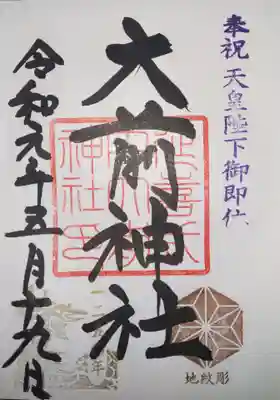 奉祝 天皇陛下御即位
大前神社
延喜式
神社印
令和元年五月十九日
年
地紋彫